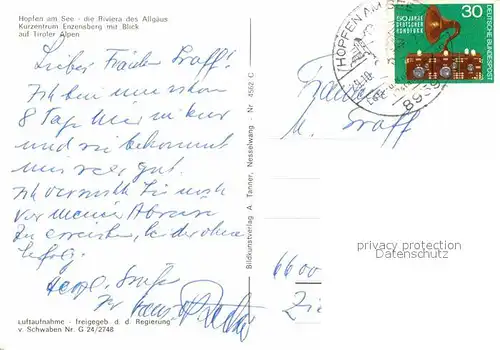 Hopfen am See - die Riviera des Allgäus
Kurzentrum Enzensberg mit Blick
auf Tiroler Alpen
Liebes Fräulein Graff!
Ich bin nun schon
8 Tage hier in Kur
und sie bekommt
mir sehr gut.
Ich versuchte Sie noch
vor meiner Abreise
zu erreichen, leider ohne
Erfolg.
Herzl. Grüße
Ihr
Luftaufnahme - freigegeb d. d. Regierung
v. Schwaben Nr. G 24/2748
Bildkunstverlag A. Tanner, Nesselwang - Nr. 4562 C
HOPFEN AM SEE
8959
30
50 JAHRE
DEUTSCHER
RUNDFUNK
DEUTSCHE BUNDESPOST
Fräulein
M. Graff
privacy protection
Datenschutz
6600